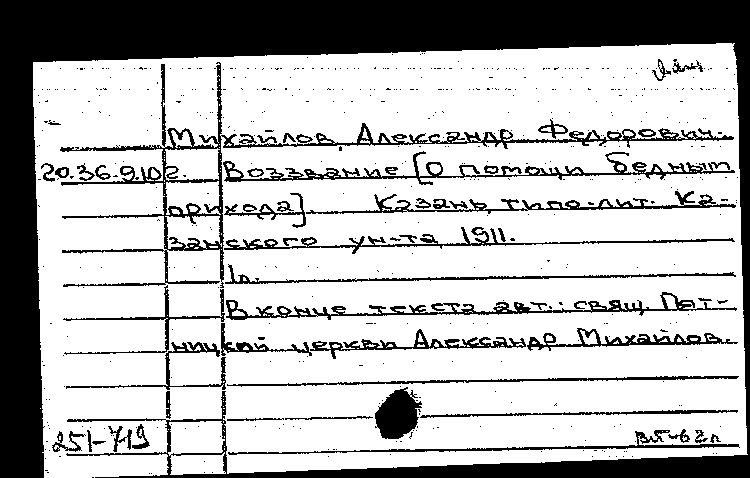 Михайлов, Александр Федорович.
20.36.9.102. Воззвание [О помощи бедным
прихода]. Казань, типо-лит. Ка-
занского ун-та, 1911.
1л.
В конце текста авт.: свящ. Пят-
ницкой церкви Александр Михайлов.
251-719